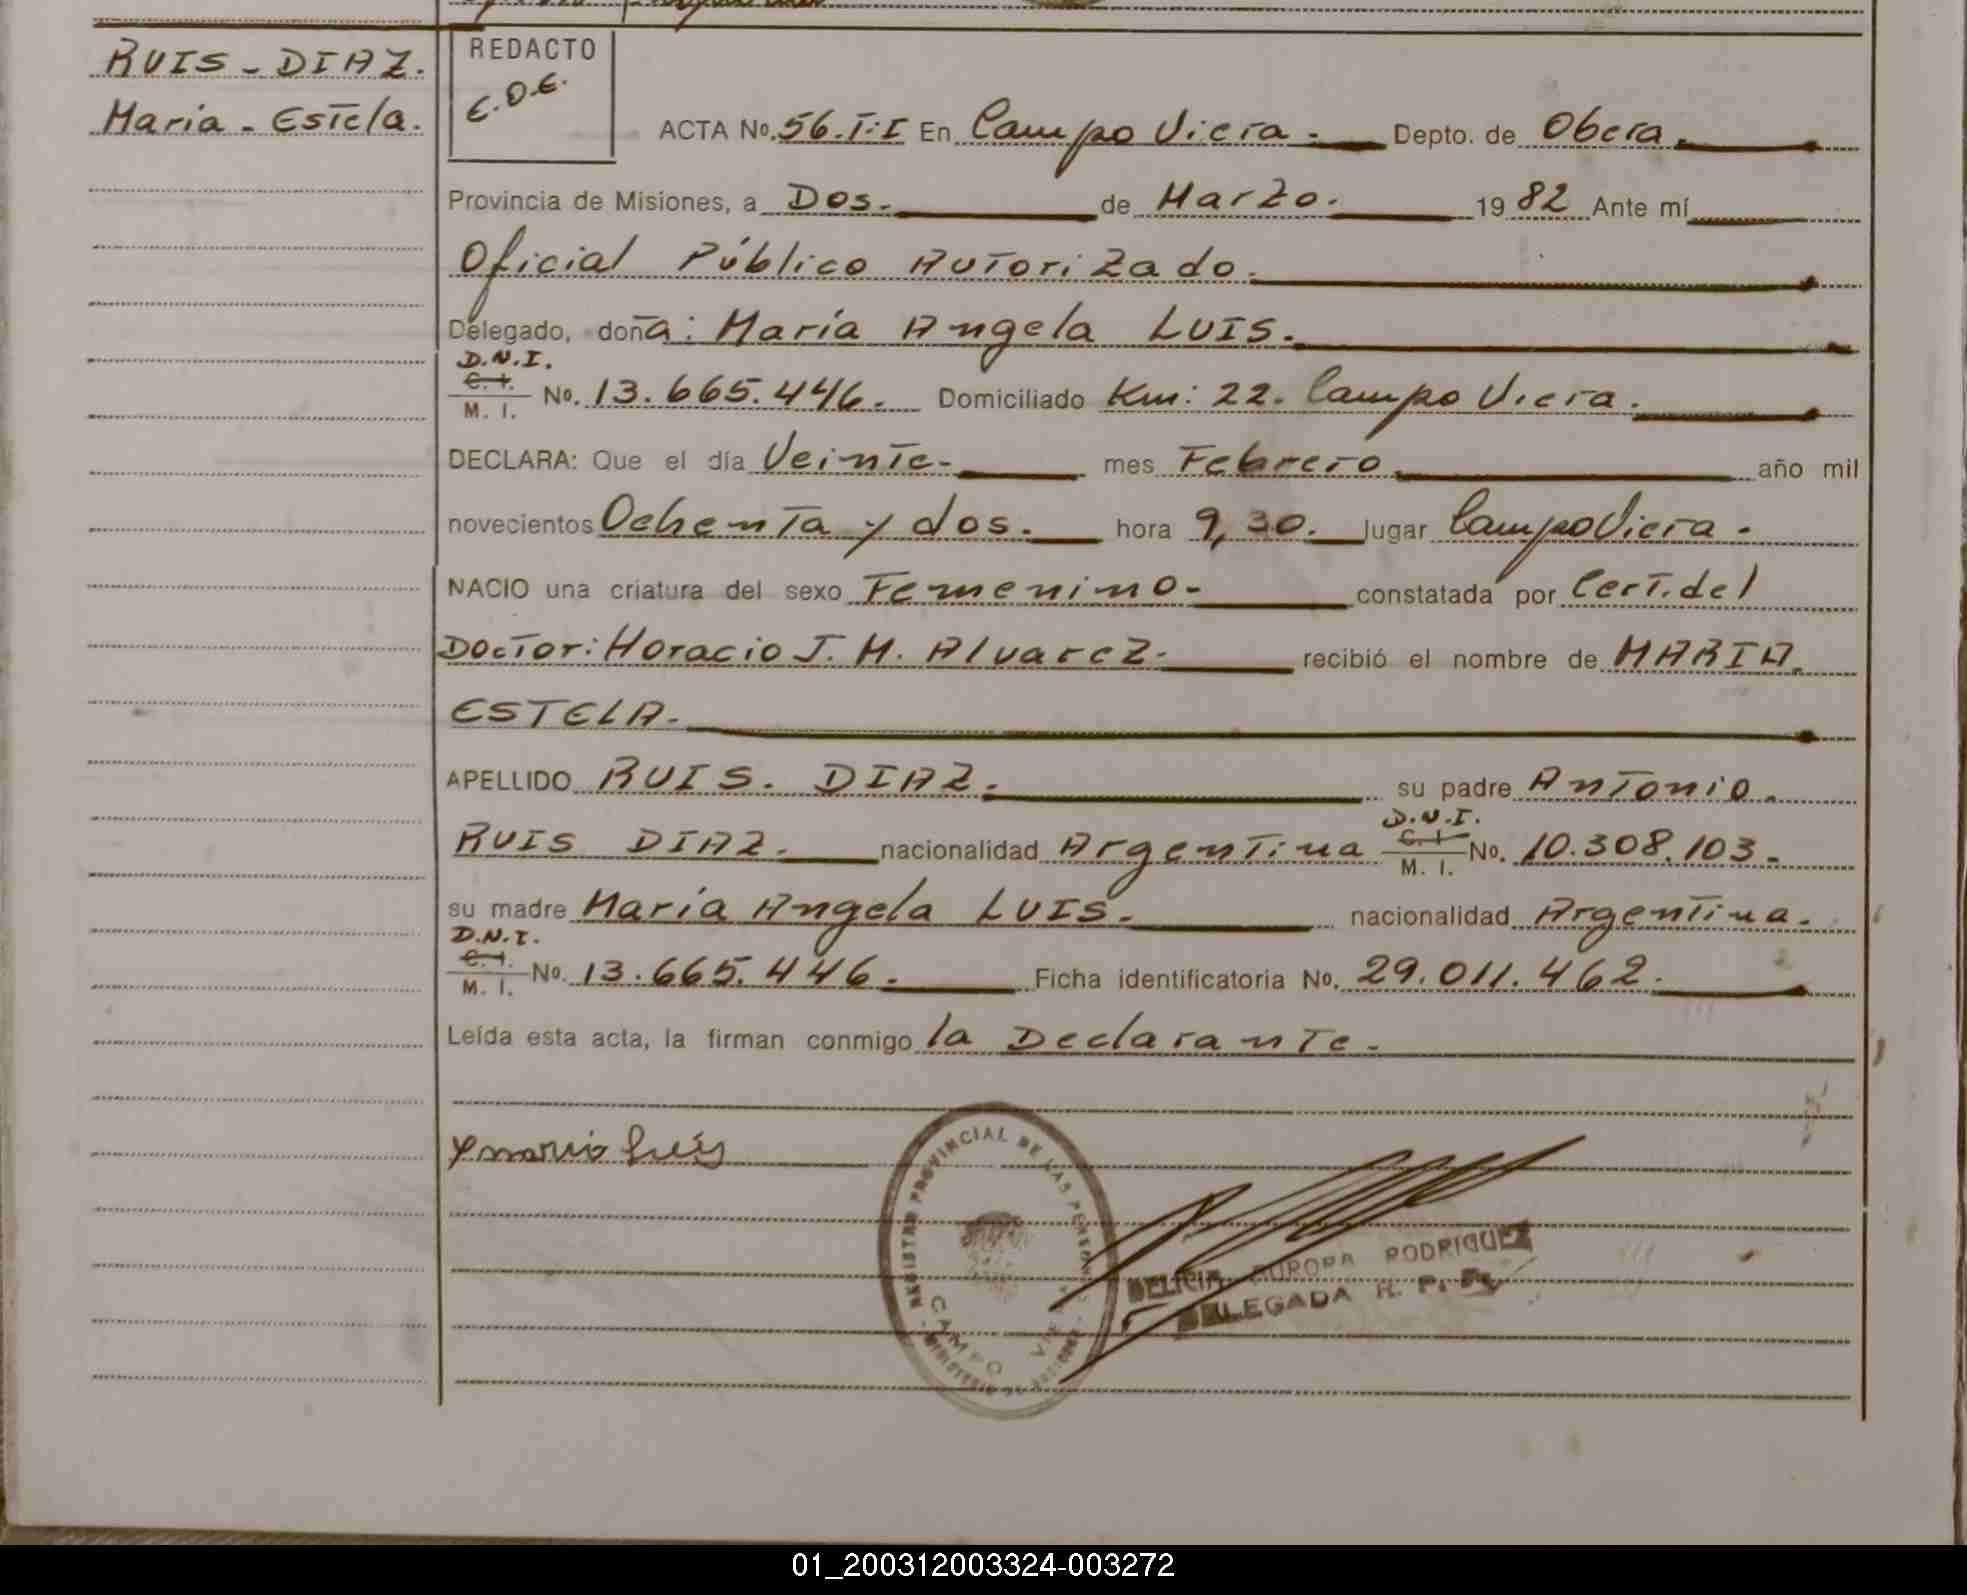 RUIS - DIAZ.
Maria - Estela.
REDACTO
E.O.E.
ACTA No. 56.T:I En Campo Viera. Depto. de Obera.
Provincia de Misiones, a Dos. de Marzo. 1982 Ante mí
Oficial Público Autorizado.
Delegado, doña: María Angela LUIS.
D.N.I.
C. I.
M. I. No. 13.665.446. Domiciliado Km: 22. Campo Viera.
DECLARA: Que el día Veinte- mes Febrero. año mil
novecientos Ochenta y dos. hora 9,30. lugar Campo Viera.
NACIO una criatura del sexo Femenino- constatada por Cert. del
Doctor: Horacio J. M. Alvarez. recibió el nombre de MARIA.
ESTELA.
APELLIDO RUIS. DIAZ. su padre Antonio.
RUIS DIAZ. nacionalidad Argentina D.N.I. C. I. M. I. No. 10.308.103.
su madre María Angela LUIS. nacionalidad Argentina.
D.N.I.
C. I.
M. I. No. 13.665.446. Ficha identificatoria No. 29.011.462.
Leída esta acta, la firman conmigo la Declarante.
REGISTRO PROVINCIAL DE LAS PERSONAS
CAMPO VIERA
DELICIA AURORA RODRIGUEZ
DELEGADA R. P. P.
01_200312003324-003272